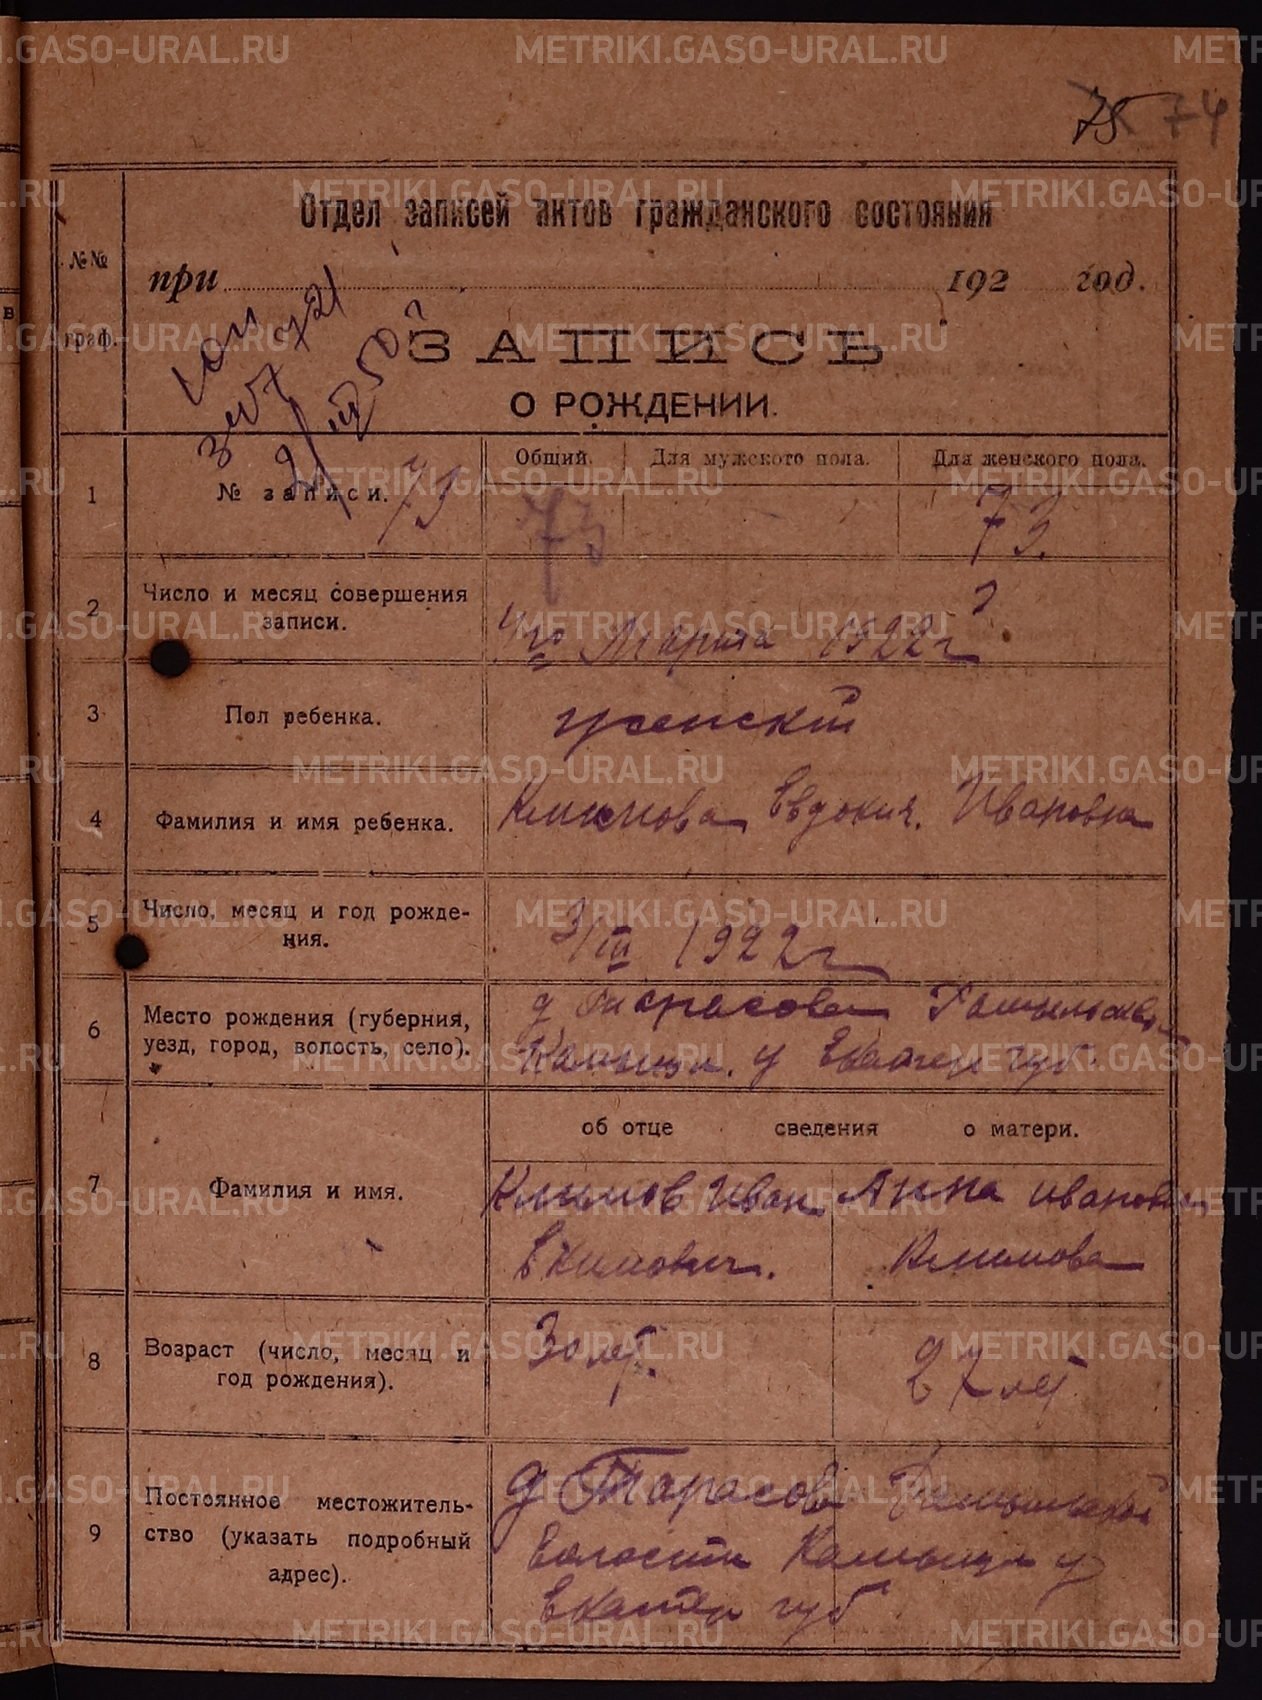 METRIKI.GASO-URAL.RU
75 74
Отдел записей актов гражданского состояния
№№ граф.
при 192 год.
ЗАПИСЬ
О РОЖДЕНИИ.
Общий. Для мужского пола. Для женского пола.
1 № записи. 73 73 73.
2 Число и месяц совершения
записи.
Марта 1922 г
3 Пол ребенка. женскій
4 Фамилия и имя ребенка. Климова Евдокия. Ивановна
5 Число, месяц и год рожде-
ния.
3/III 1922 г
6 Место рождения (губерния,
уезд, город, волость, село).
д Тарасова
Камышл. у Екатер губ.
об отце сведения о матери.
7 Фамилия и имя.
Климов Иван Анна Ивановна
Екимович. Климова
8 Возраст (число, месяц и
год рождения).
30 лет. 27 лет
9 Постоянное местожитель-
ство (указать подробный
адрес).
д Тарасова
Волости Камышл у
Екатер губ